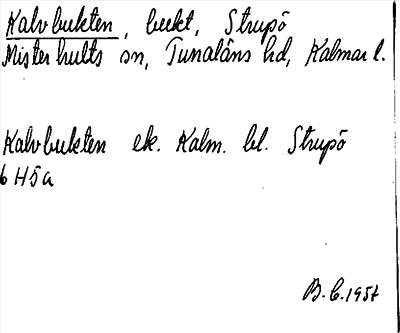 Kalvbukten, bukt, Strupö
Misterhults sn, Tunaläns hd, Kalmar l.
Kalvbukten ek. Kalm. bl. Strupö
6 H5a
B.C. 1957